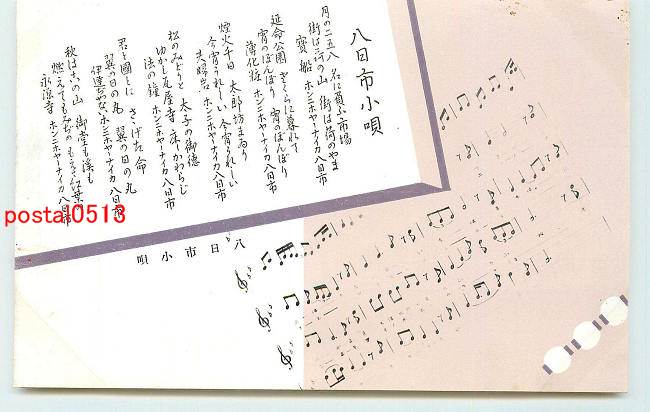 八日市小唄
月の二五八 名に負ふ市場
街は荷の山 街は荷のやま
寳船 ホンニホヤーナイカ八日市
延命公園 さくらに暮れて
宵のぼんぼり 宵のぼんぼり
薄化粧 ホンニホヤーナイカ八日市
太郎坊まゐり
今宵うれしい 今宵うれしい
夫婦岩 ホンニホヤーナイカ八日市
松のみどりと 太子の御徳
ゆかし瓦屋寺
法の鐘 ホンニホヤーナイカ八日市
君と國とに さゝげた命
翼の日の丸 翼の日の丸
伊達ぢやない ホンニホヤーナイカ八日市
秋は 山 御堂も溪も
燃えてもみぢの
永源寺 ホンニホヤーナイカ八日市
八日市小唄
postal0513